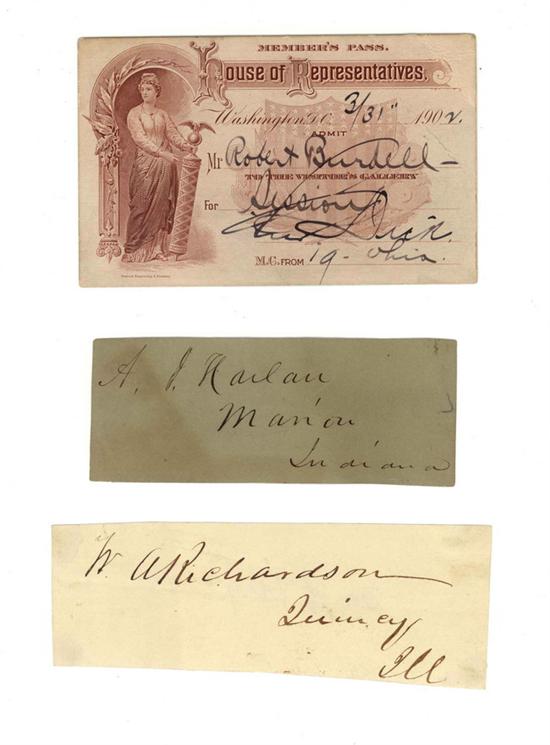 MEMBER'S PASS.
House of Representatives,
Washington, D.C. 3/31" 1902.
ADMIT
Mr Robert Burdell -
TO THE VISITOR'S GALLERY
For Session
Dick.
M.C. FROM 19 - Ohio.
A. J. Harlan
Marion
Indiana
W. A Richardson
Quincy
Ill